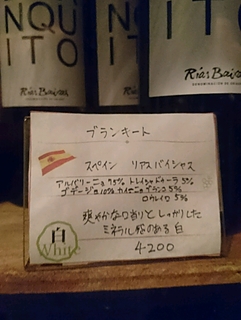 NQU
ITO
Rías Baixas
QUI
ITO
Rías Baixas
DENOMINACIÓN DE ORIGEN
ブランキート
スペイン リアスバイシャス
アルバリーニョ 75% トレイシャドゥーラ 5%
ゴデージョ 10% カイーニョブランコ 5%
ロウレイロ 5%
爽やかな香りとしっかりした
ミネラル感のある白
4200
白
White